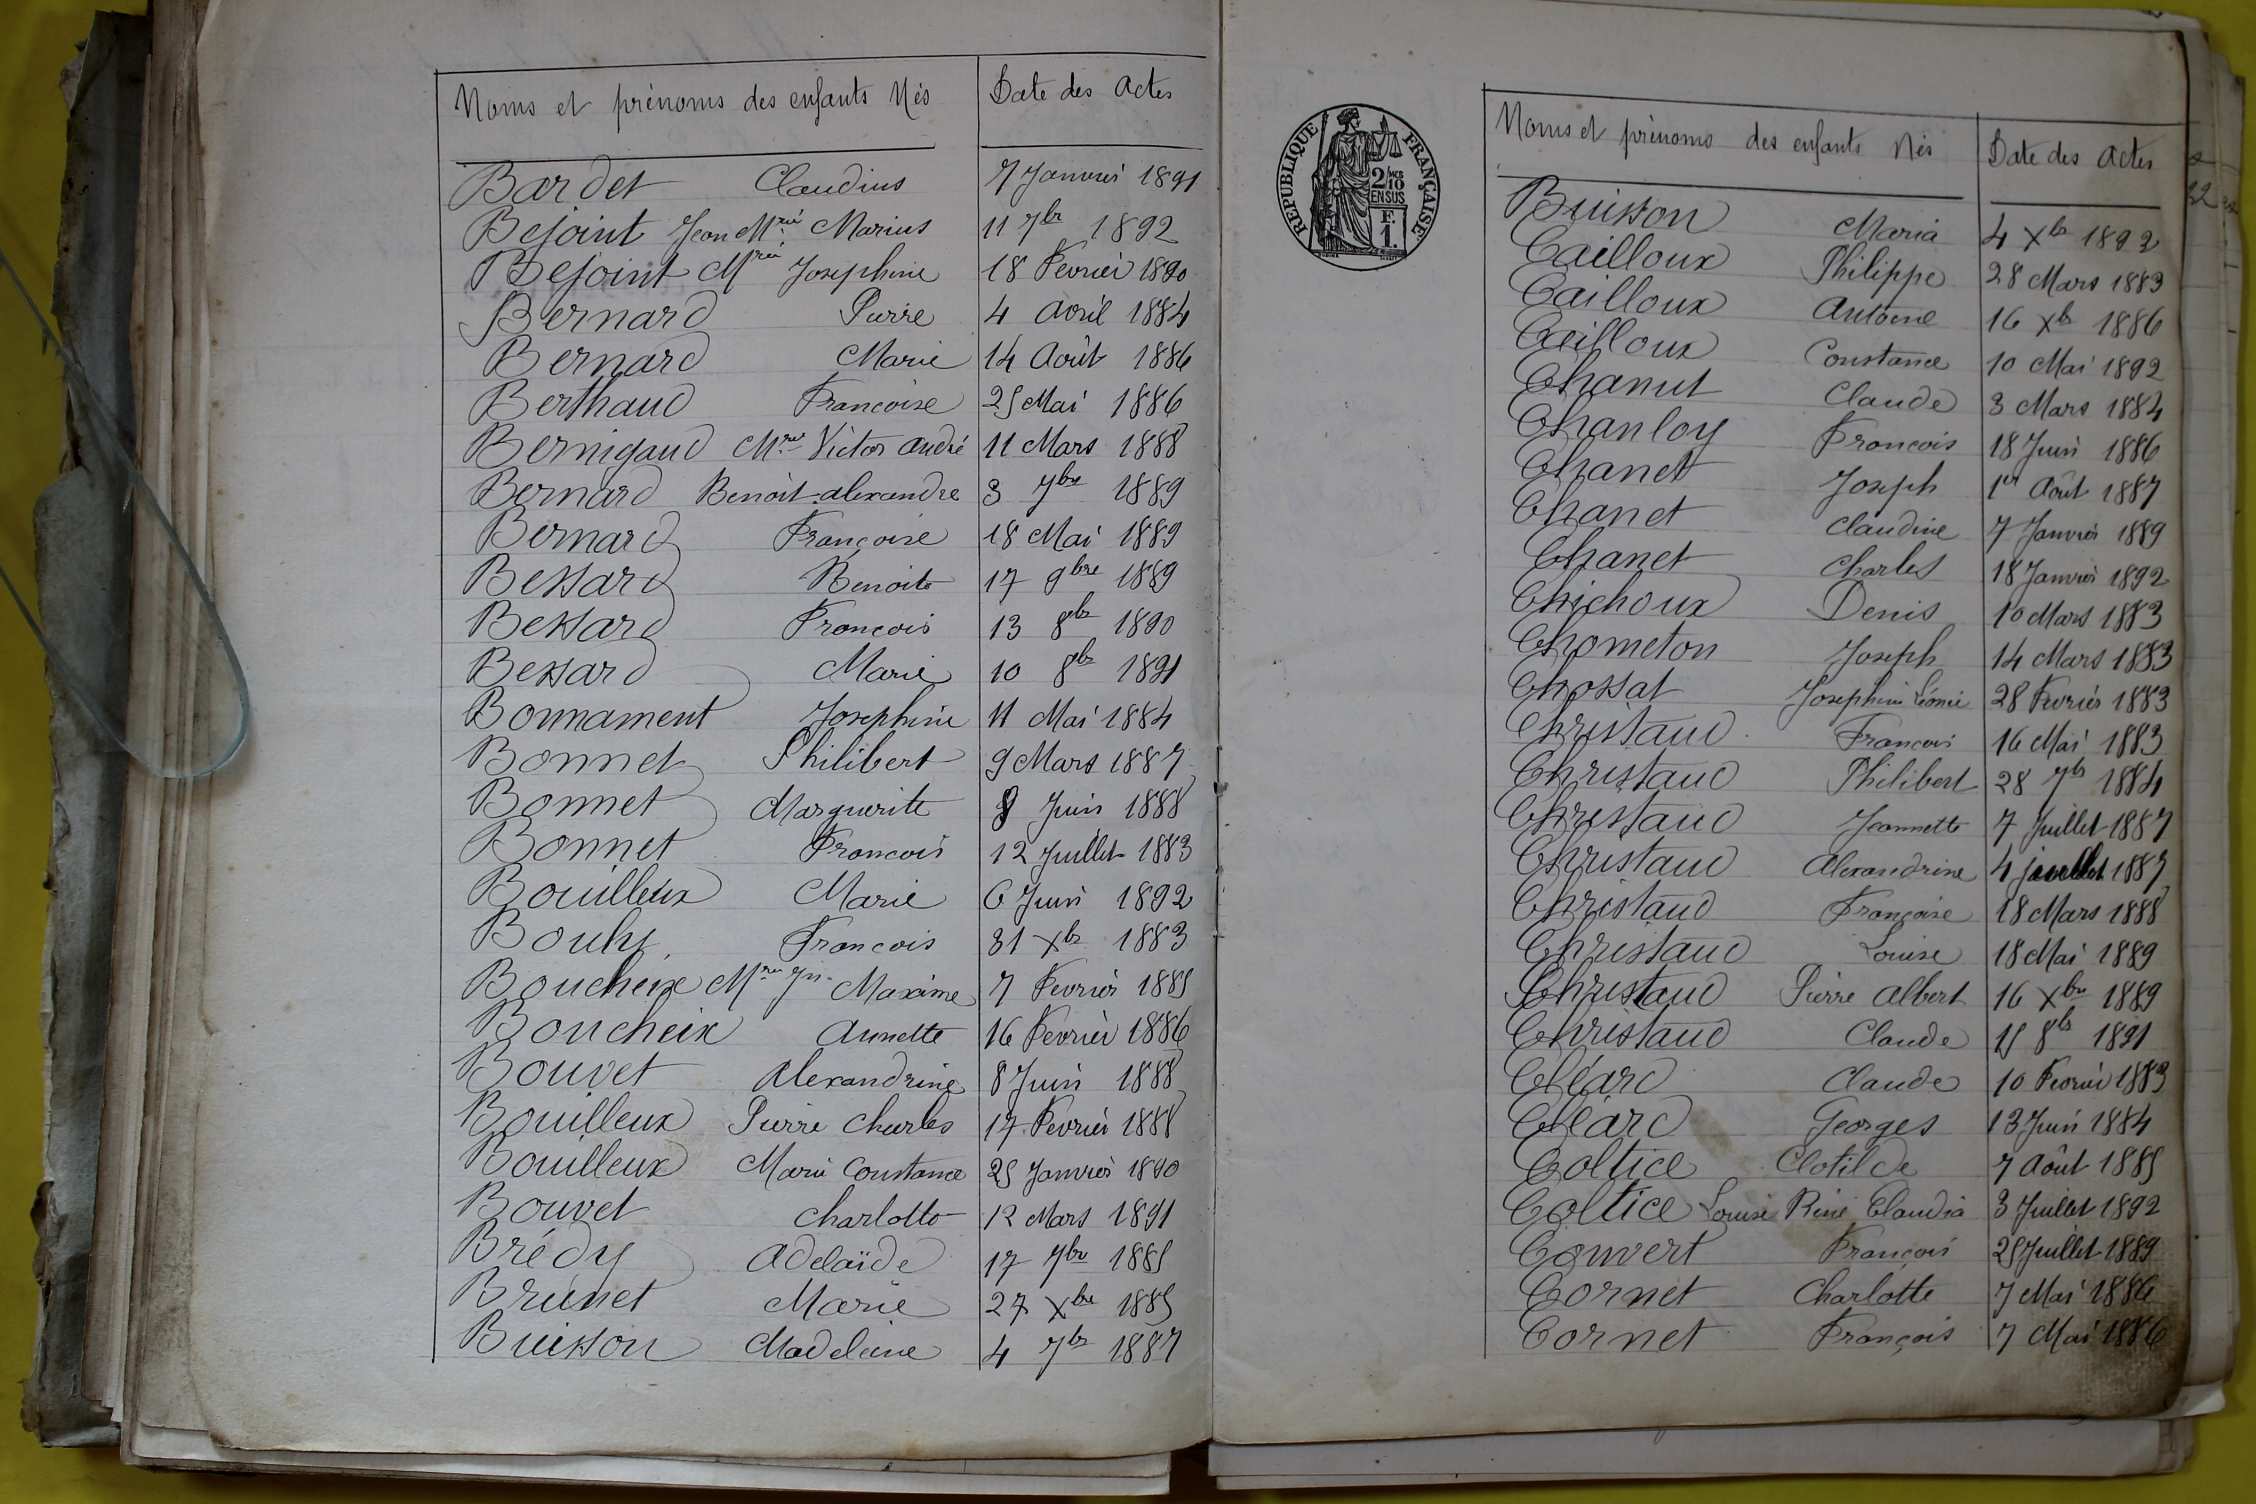 Noms et prénoms des enfants Nés Date des Actes
Bardet Claudius 7 Janvier 1891
Bejoint Jean Mrié Marius 11 7br 1892
Bejoint Mrie Josephine 18 Fevrier 1890
Bernard Pierre 4 Avril 1884
Bernard Marie 14 Août 1886
Berthaud Francoise 25 Mai 1886
Bernigaud Mre Victor André 11 Mars 1888
Bernard Benoit-alexandre 3 7bre 1889
Bernard Françoise 18 Mai 1889
Bessard Benoite 17 9bre 1889
Bessard Francois 13 8br 1890
Bessard Marie 10 8br 1891
Bonnament Josephine 11 Mai 1884
Bonnet Philibert 9 Mars 1887
Bonnet Marguerite 8 Juin 1888
Bonnet Francois 12 Juillet 1883
Bouilleux Marie 6 Juin 1892
Bouhy Francois 31 Xbr 1883
Boucheix Mre Jn Maxime 7 Fevrier 1885
Boucheix Annette 16 Fevrier 1886
Bouvet Alexandrine 8 Juin 1888
Bouilleux Pierre Charles 17 Fevrier 1888
Bouilleux Marie Constance 25 Janvier 1890
Bouvet Charlotte 12 Mars 1891
Brédy Adelaïde 17 7bre 1885
Brunet Marie 27 Xbre 1885
Buisson Madeleine 4 7br 1887
REPUBLIQUE FRANÇAISE
2/10 MES
EN SUS
F.
1.
Noms et prénoms des enfants Nés Date des Actes
Buisson Maria 4 Xbr 1892
Cailloux Philippe 28 Mars 1883
Cailloux Antoine 16 Xbr 1886
Cailloux Constance 10 Mai 1892
Chanut Claude 3 Mars 1884
Chanloy Francois 18 Juin 1886
Chanet Joseph 1er Août 1887
Chanet Claudine 7 Janvier 1889
Chanet Charles 18 Janvier 1892
Chichoux Denis 10 Mars 1883
Chometon Joseph 14 Mars 1883
Chossat Josephine Léonie 28 Fevrier 1883
Christaud Francois 16 Mai 1883
Christaud Philibert 28 7br 1884
Christaud Jeannette 7 Juillet 1887
Christaud Alexandrine 4 juillet 1887
Christaud Françoise 18 Mars 1888
Christaud Louise 18 Mai 1889
Christaud Pierre Albert 16 Xbre 1889
Christaud Claude 15 8br 1891
Cléard Claude 10 Fevrier 1883
Cléard Georges 13 Juin 1884
Coltice Clotilde 7 Août 1885
Coltice Louise Rine Claudia 3 Juillet 1892
Convert François 25 Juillet 1889
Cornet Charlotte 7 Mai 1886
Cornet François 7 Mai 1886